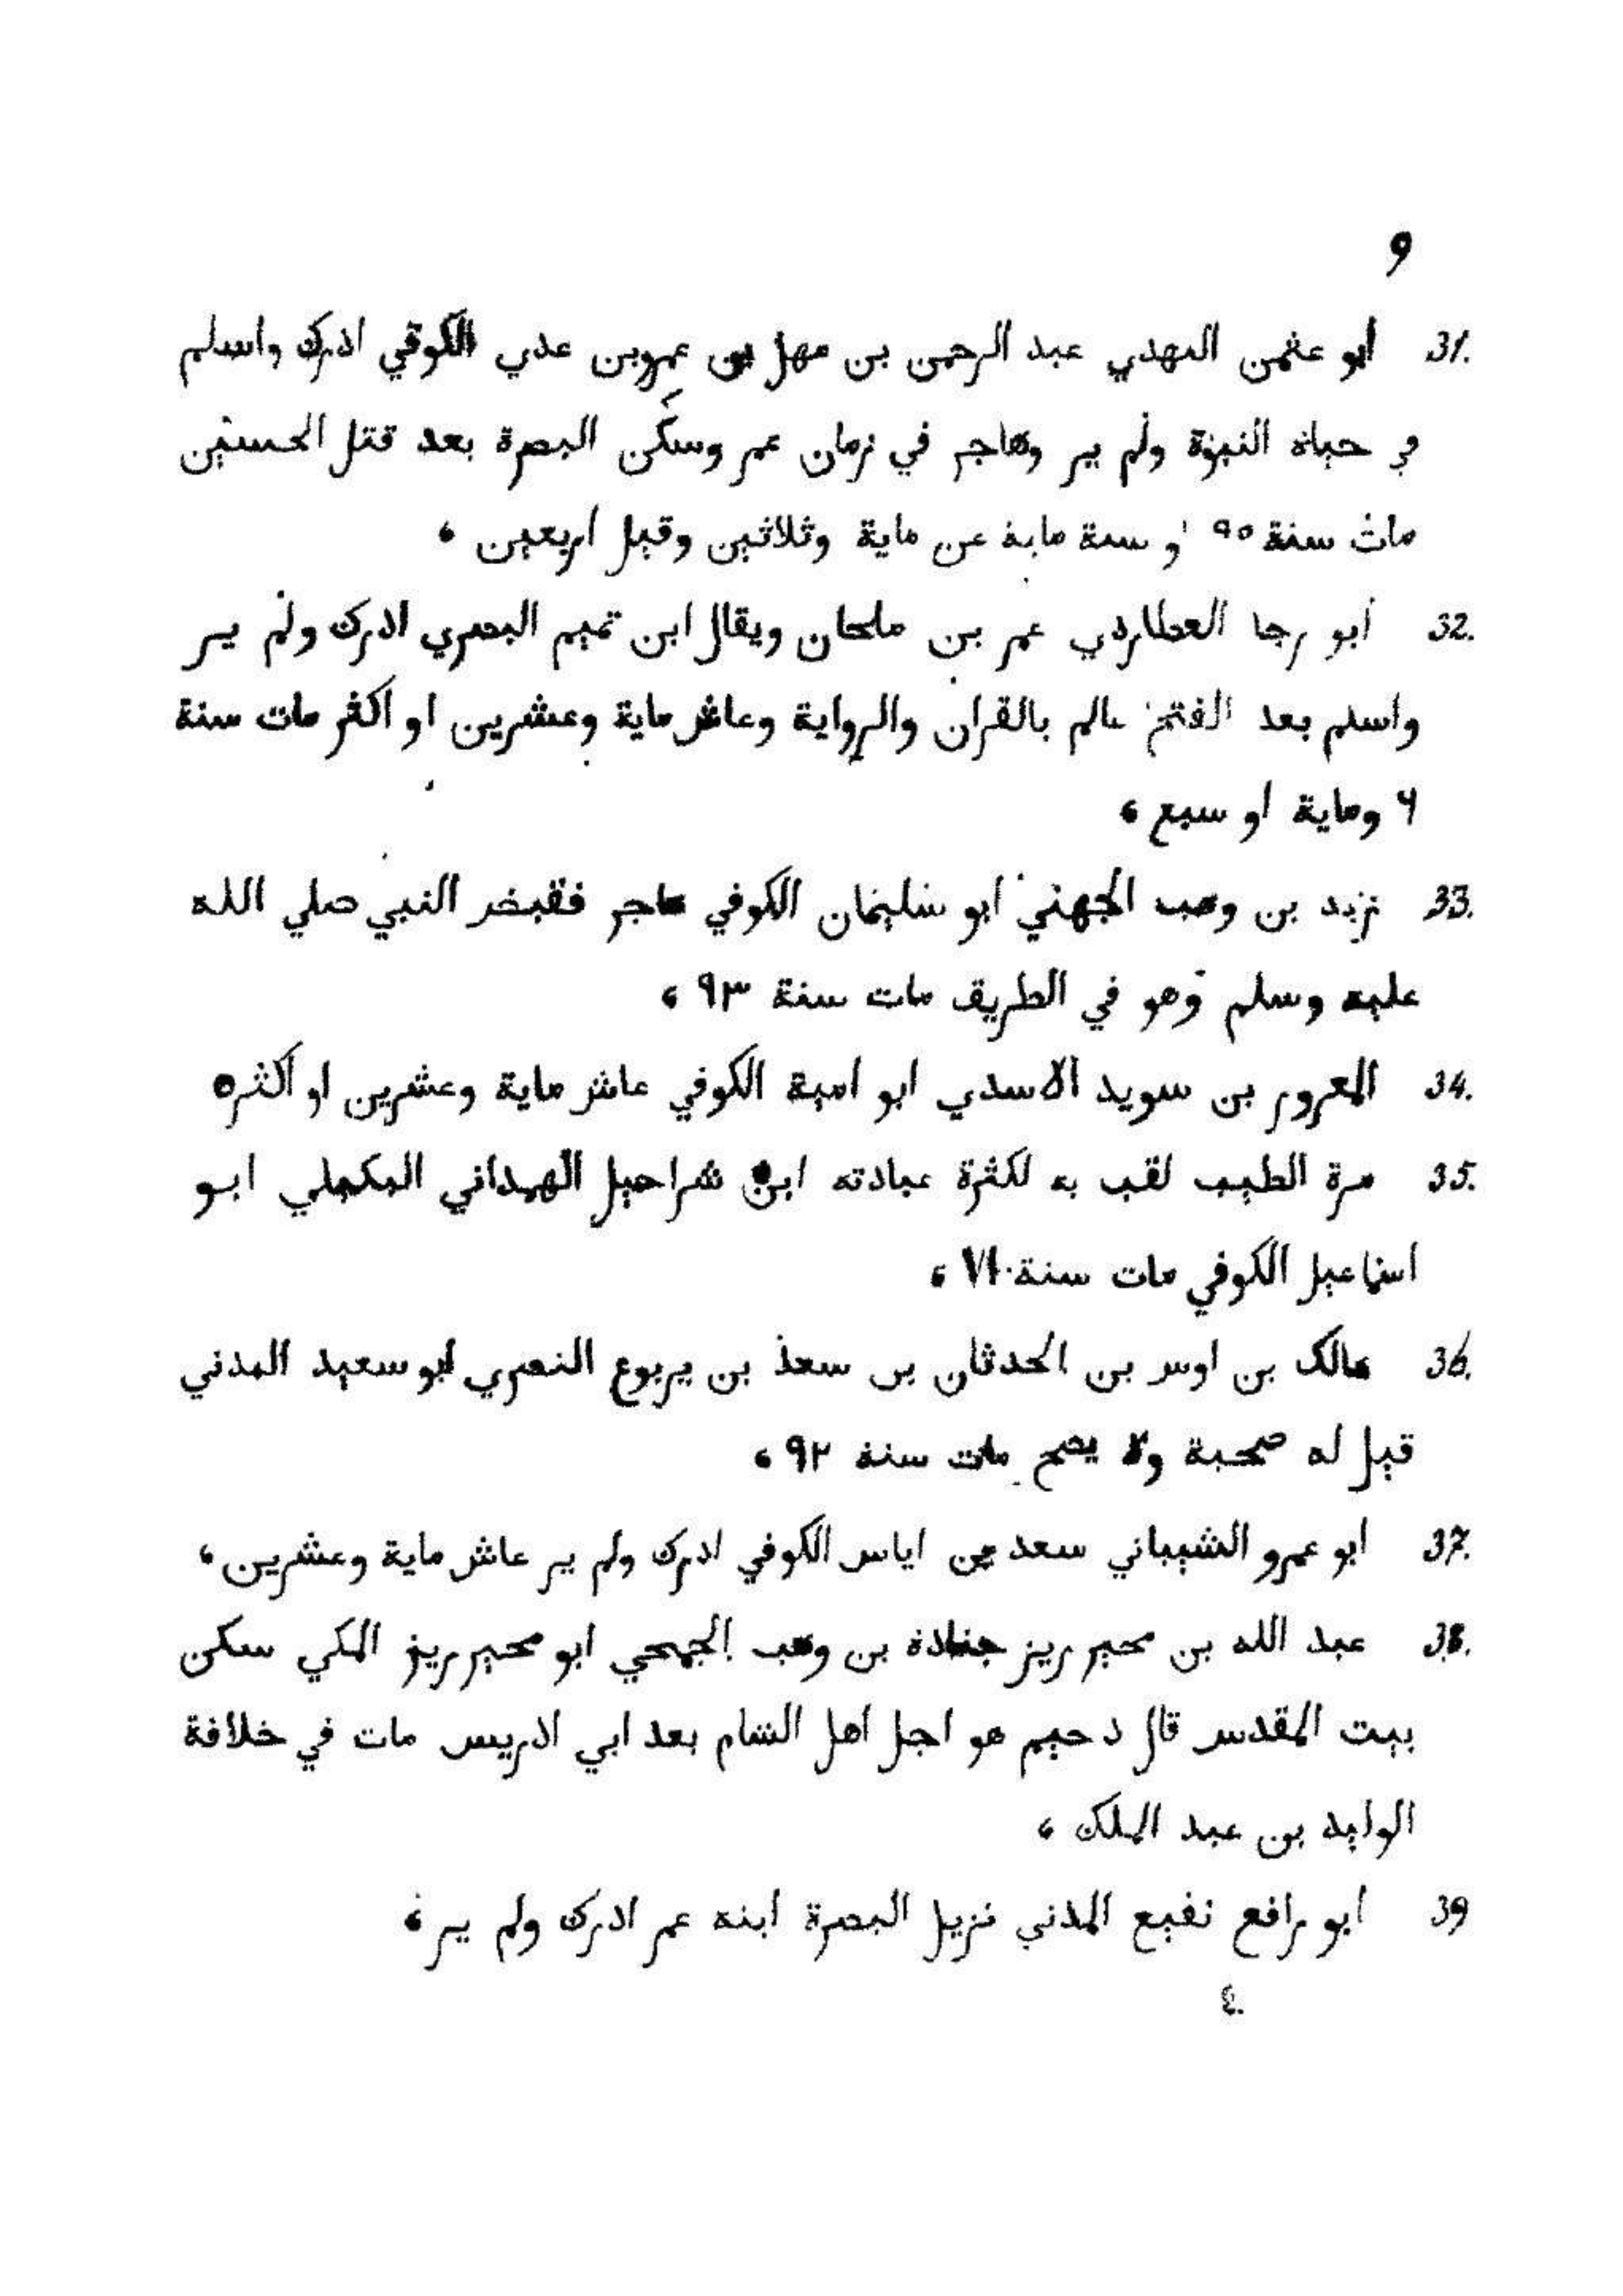 9
31. أبو عثمن النهدي عبد الرحمن بن مهل بن عمرو بن عدي الكوفي ادرك واسلم
في حياة النبوة ولم ير وهاجر في زمان عمر وسكن البصرة بعد قتل الحسين
مات سنة ٩٥ او سنة ماية عن ماية وثلاثين وقيل اربعين ،
32. أبو رجا العطاردي عمر بن ملحان ويقال ابن تميم البصري ادرك ولم ير
واسلم بعد الفتح عالم بالقران والرواية وعاش ماية وعشرين او اكثر مات سنة
٦ وماية او سبع ،
33. زيد بن وهب الجهني ابو سليمان الكوفي هاجر فقبض النبي صلي الله
عليه وسلم وهو في الطريق مات سنة ٩٣ ،
34. المعرور بن سويد الاسدي ابو امية الكوفي عاش ماية وعشرين او اكثره
35. مرة الطيب لقب به لكثرة عبادته ابن شراحيل الهمداني ابو
اسماعيل الكوفي مات سنة
36. مالك بن اوس بن الحدثان بن سعد بن يربوع النصري ابو سعيد المدني
قيل له صحبة ولا يصح مات سنة ٩٢ ،
37. ابو عمرو الشيباني سعد بن اياس الكوفي ادرك ولم ير عاش ماية وعشرين ،
38. عبد الله بن محيريز جنادة بن وهب الجمحي ابو محيريز المكي سكن
بيت المقدس قال دحيم هو اجل اهل الشام بعد ابي ادريس مات في خلافة
الوليد بن عبد الملك ،
39 ابو رافع نفيع المدني نزيل البصرة ابنه عمر ادرك ولم ير ،